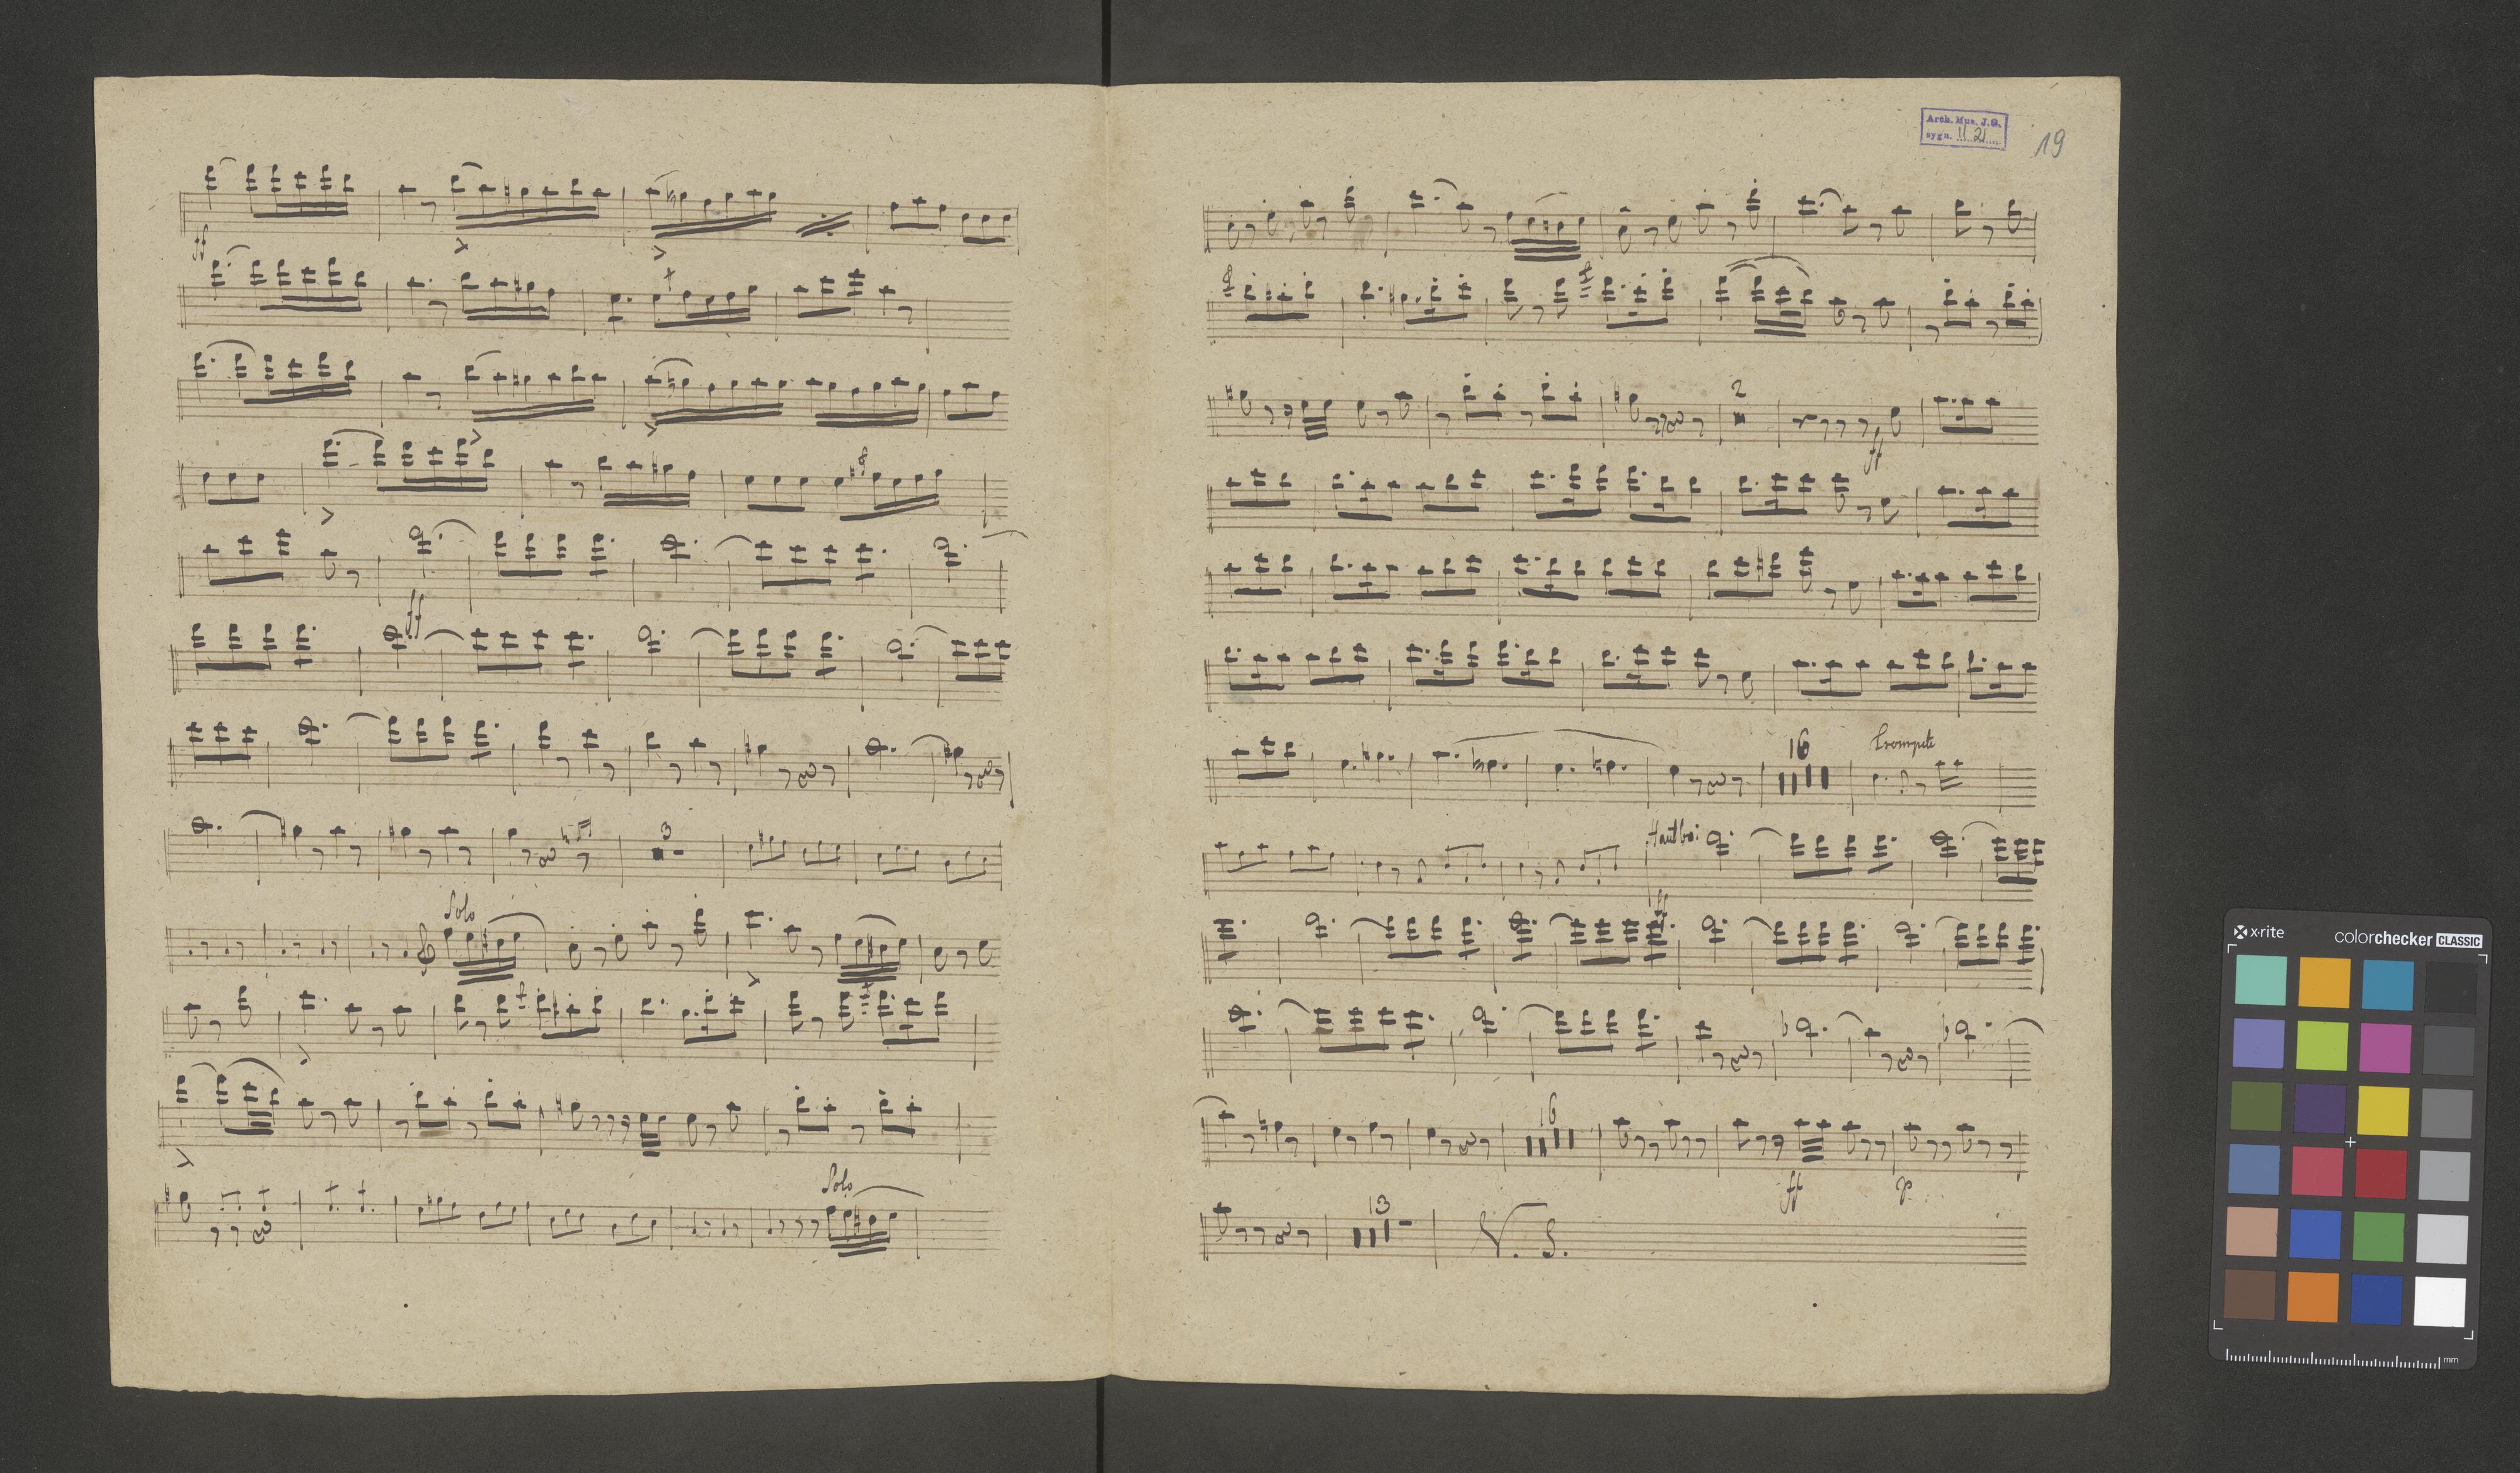 ff
ff
3
Solo
Solo
Arch. Mus. J.G.
sygn. II 21
19
2
ff
16
Trompete
Hautboi
ff
16
ff
p
13
V. S.
x-rite
colorchecker CLASSIC
mm